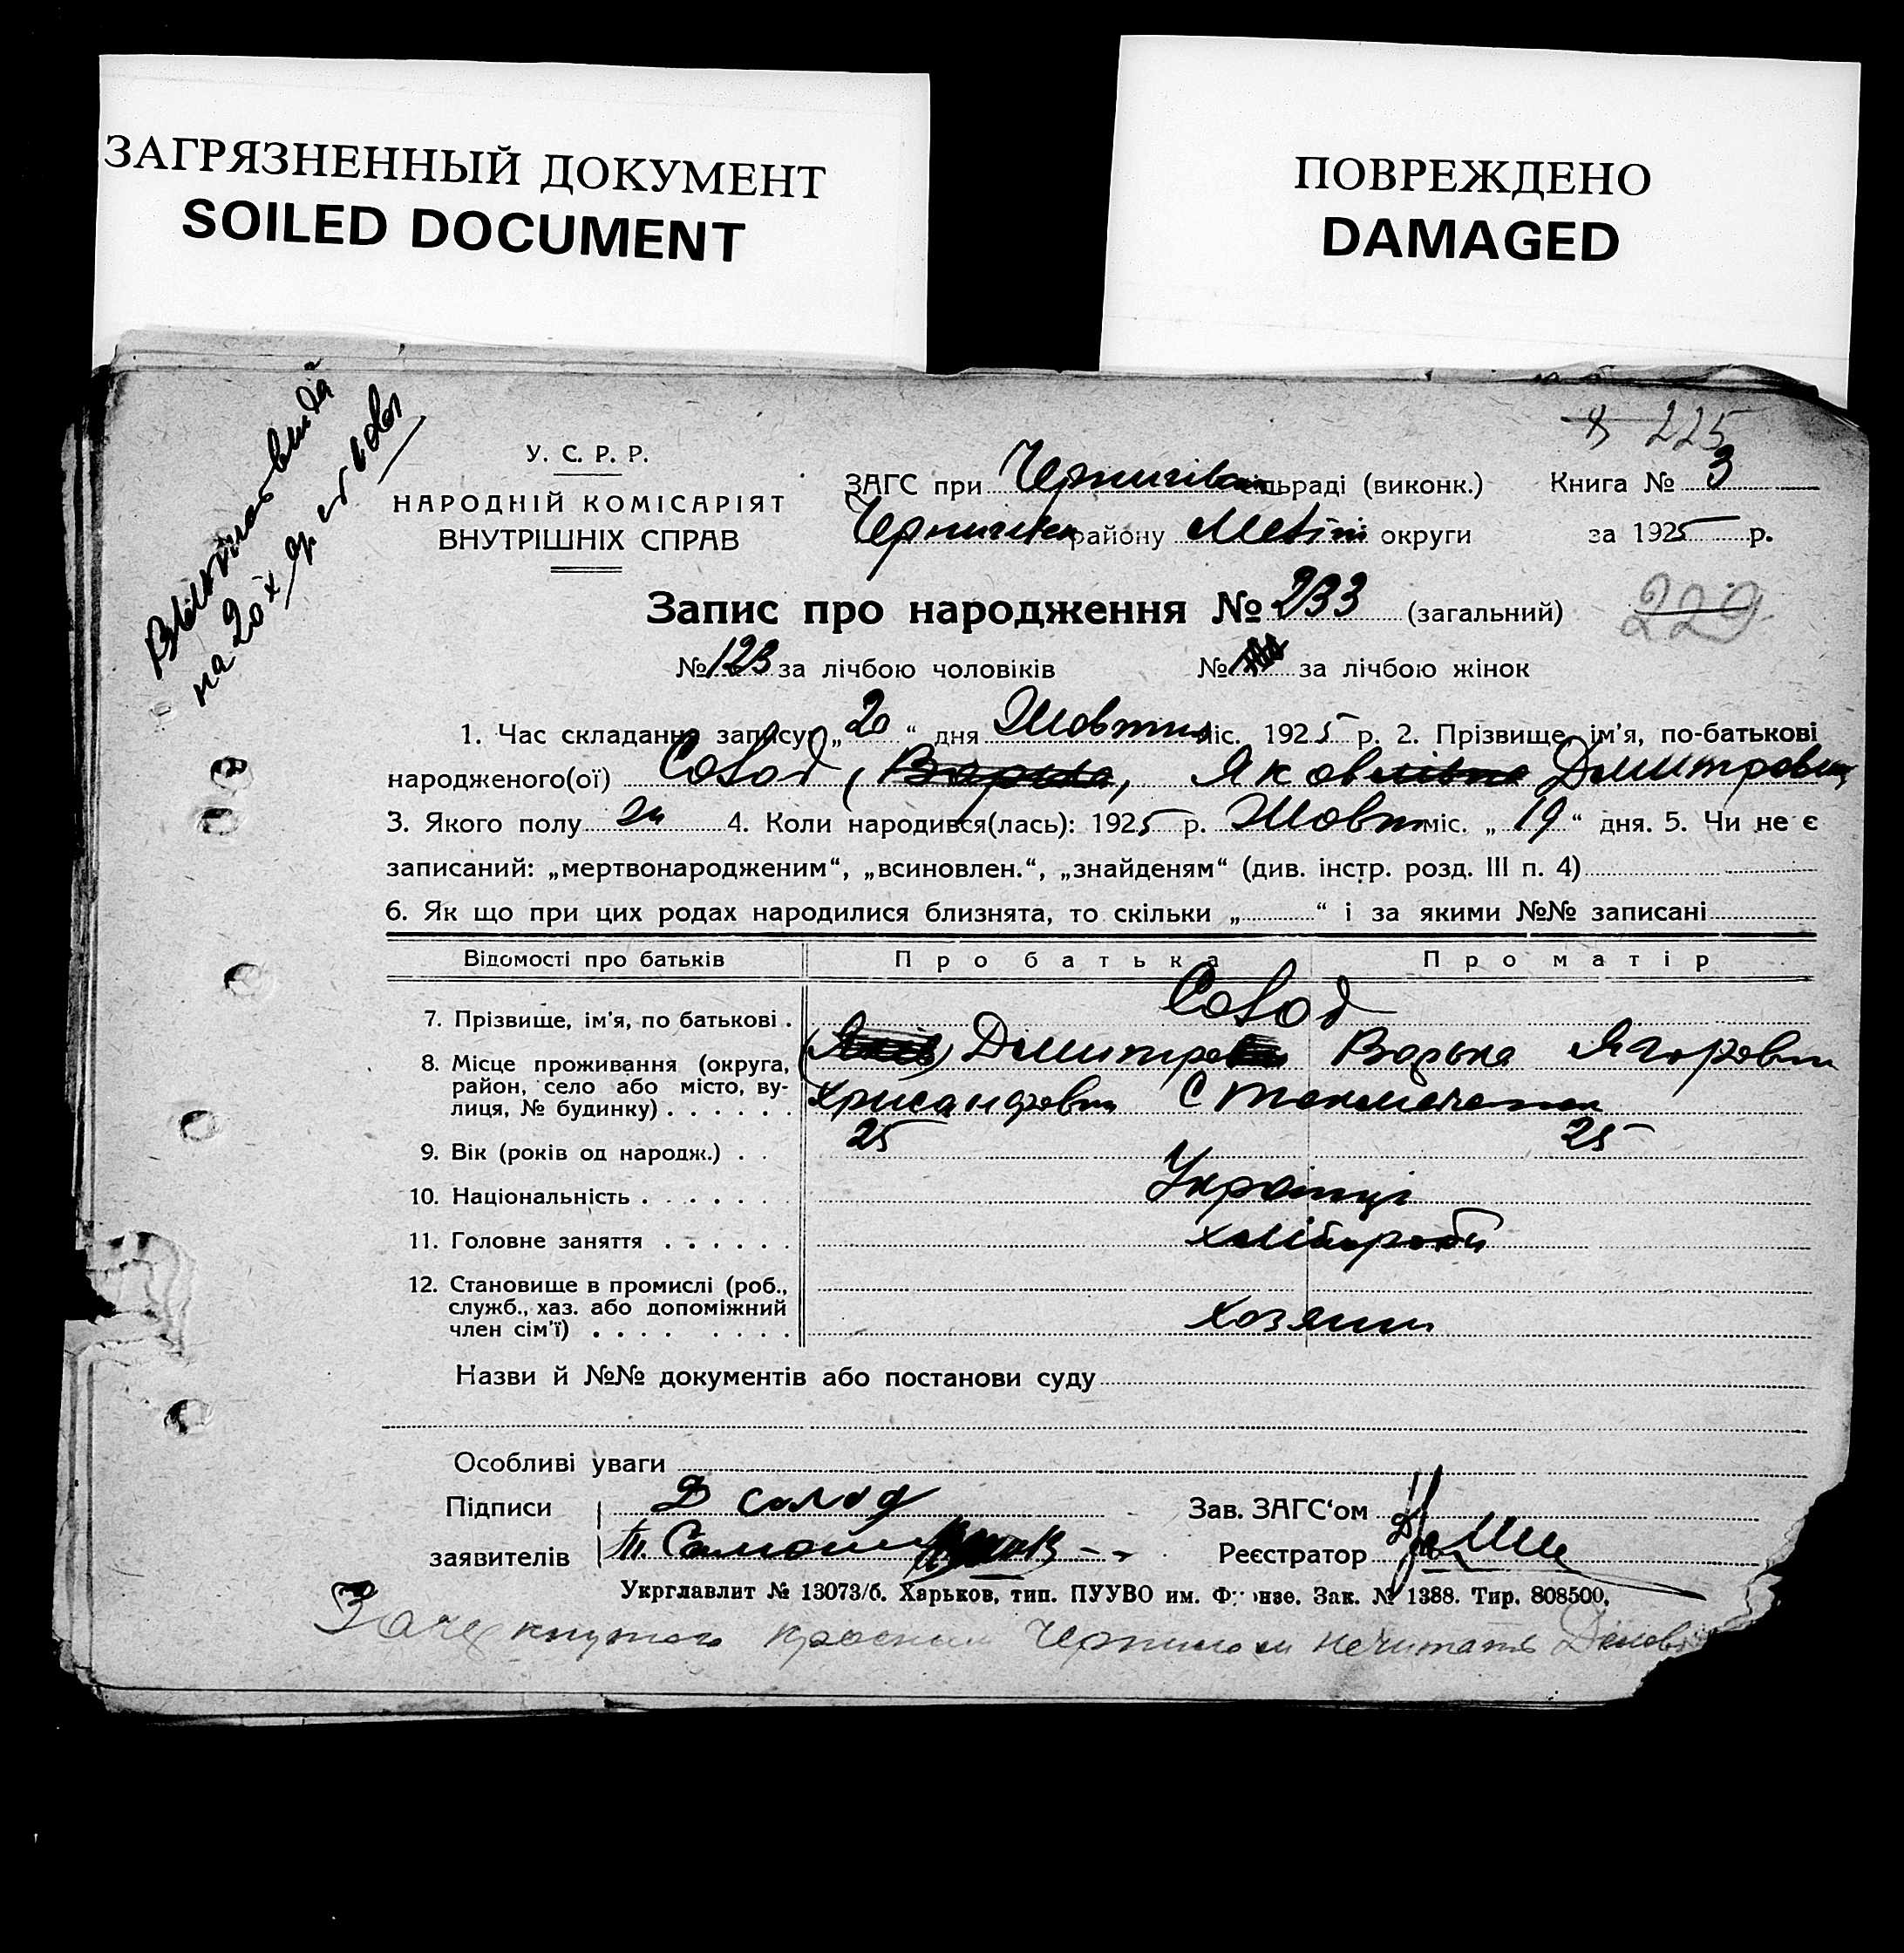 ЗАГРЯЗНЕННЫЙ ДОКУМЕНТ
SOILED DOCUMENT
ПОВРЕЖДЕНО
DAMAGED
225
У. С. Р. Р.
НАРОДНІЙ КОМІСАРІЯТ
ВНУТРІШНІХ СПРАВ
ЗАГС при Чернигівськ ільраді (виконк.) Книга № 3
району округи за 1925 р.
Запис про народження № 233 (загальний)
229
№ 123 за лічбою чоловіків № за лічбою жінок
1. Час складання запису „20“ дня Жовтня міс. 1925 р. 2. Прізвище, ім'я, по-батькові
народженого(ої) Солод, Яков Дмитрович
3. Якого полу 4. Коли народився(лась): 1925 р. Жовт міс. „19“ дня. 5. Чи не є
записаний: „мертвонародженим“, „всиновлен.“, „знайденям“ (див. інстр. розд. III п. 4)
6. Як що при цих родах народилися близнята, то скільки „ “ і за якими №№ записані
Відомості про батьків Про батька Про матір
7. Прізвище, ім'я, по батькові . Солод
8. Місце проживання (округа, Дмитро Варька Ягоровн
район, село або місто, ву-
лиця, № будинку) . . . . . . Хрисандрович С Токмачана
9. Вік (років од народж.) . . 25 25
10. Національність . . . . . . Українці
11. Головне заняття . . . . . . хлібороби
12. Становище в промислі (роб.,
служб., хаз. або допоміжний
член сім'ї) . . . . . . . . хозяин
Назви й №№ документів або постанови суду
Особливі уваги
Підписи Д солод Зав. ЗАГС'ом
заявителів Реєстратор
Укрглавлит № 13073/б. Харьков, тип. ПУУВО им. Фрунзе. Зак. № 1388. Тир. 808500.
Зачеркнутого красным чернилом нечитать